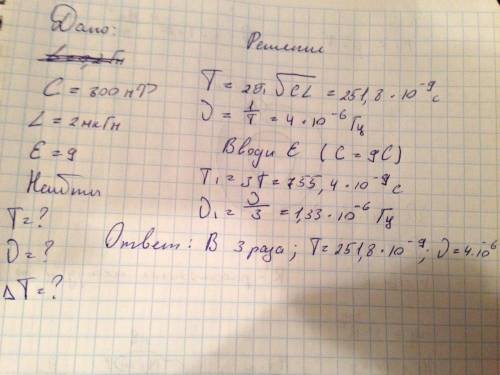 Дано:
C = 800 пФ
L = 2 мкГн
Ɛ = 9
Найти
T = ?
ν = ?
ΔT = ?
Решение
T = 2π √CL = 251,8 · 10⁻⁹ с
ν = 1/T = 4 · 10⁻⁶ Гц
Вводи Ɛ (C = 9C)
T₁ = 3T = 755,4 · 10⁻⁹ с
ν₁ = ν/3 = 1,33 · 10⁻⁶ Гц
Ответ: В 3 раза; T = 251,8 · 10⁻⁹; ν = 4·10⁻⁶